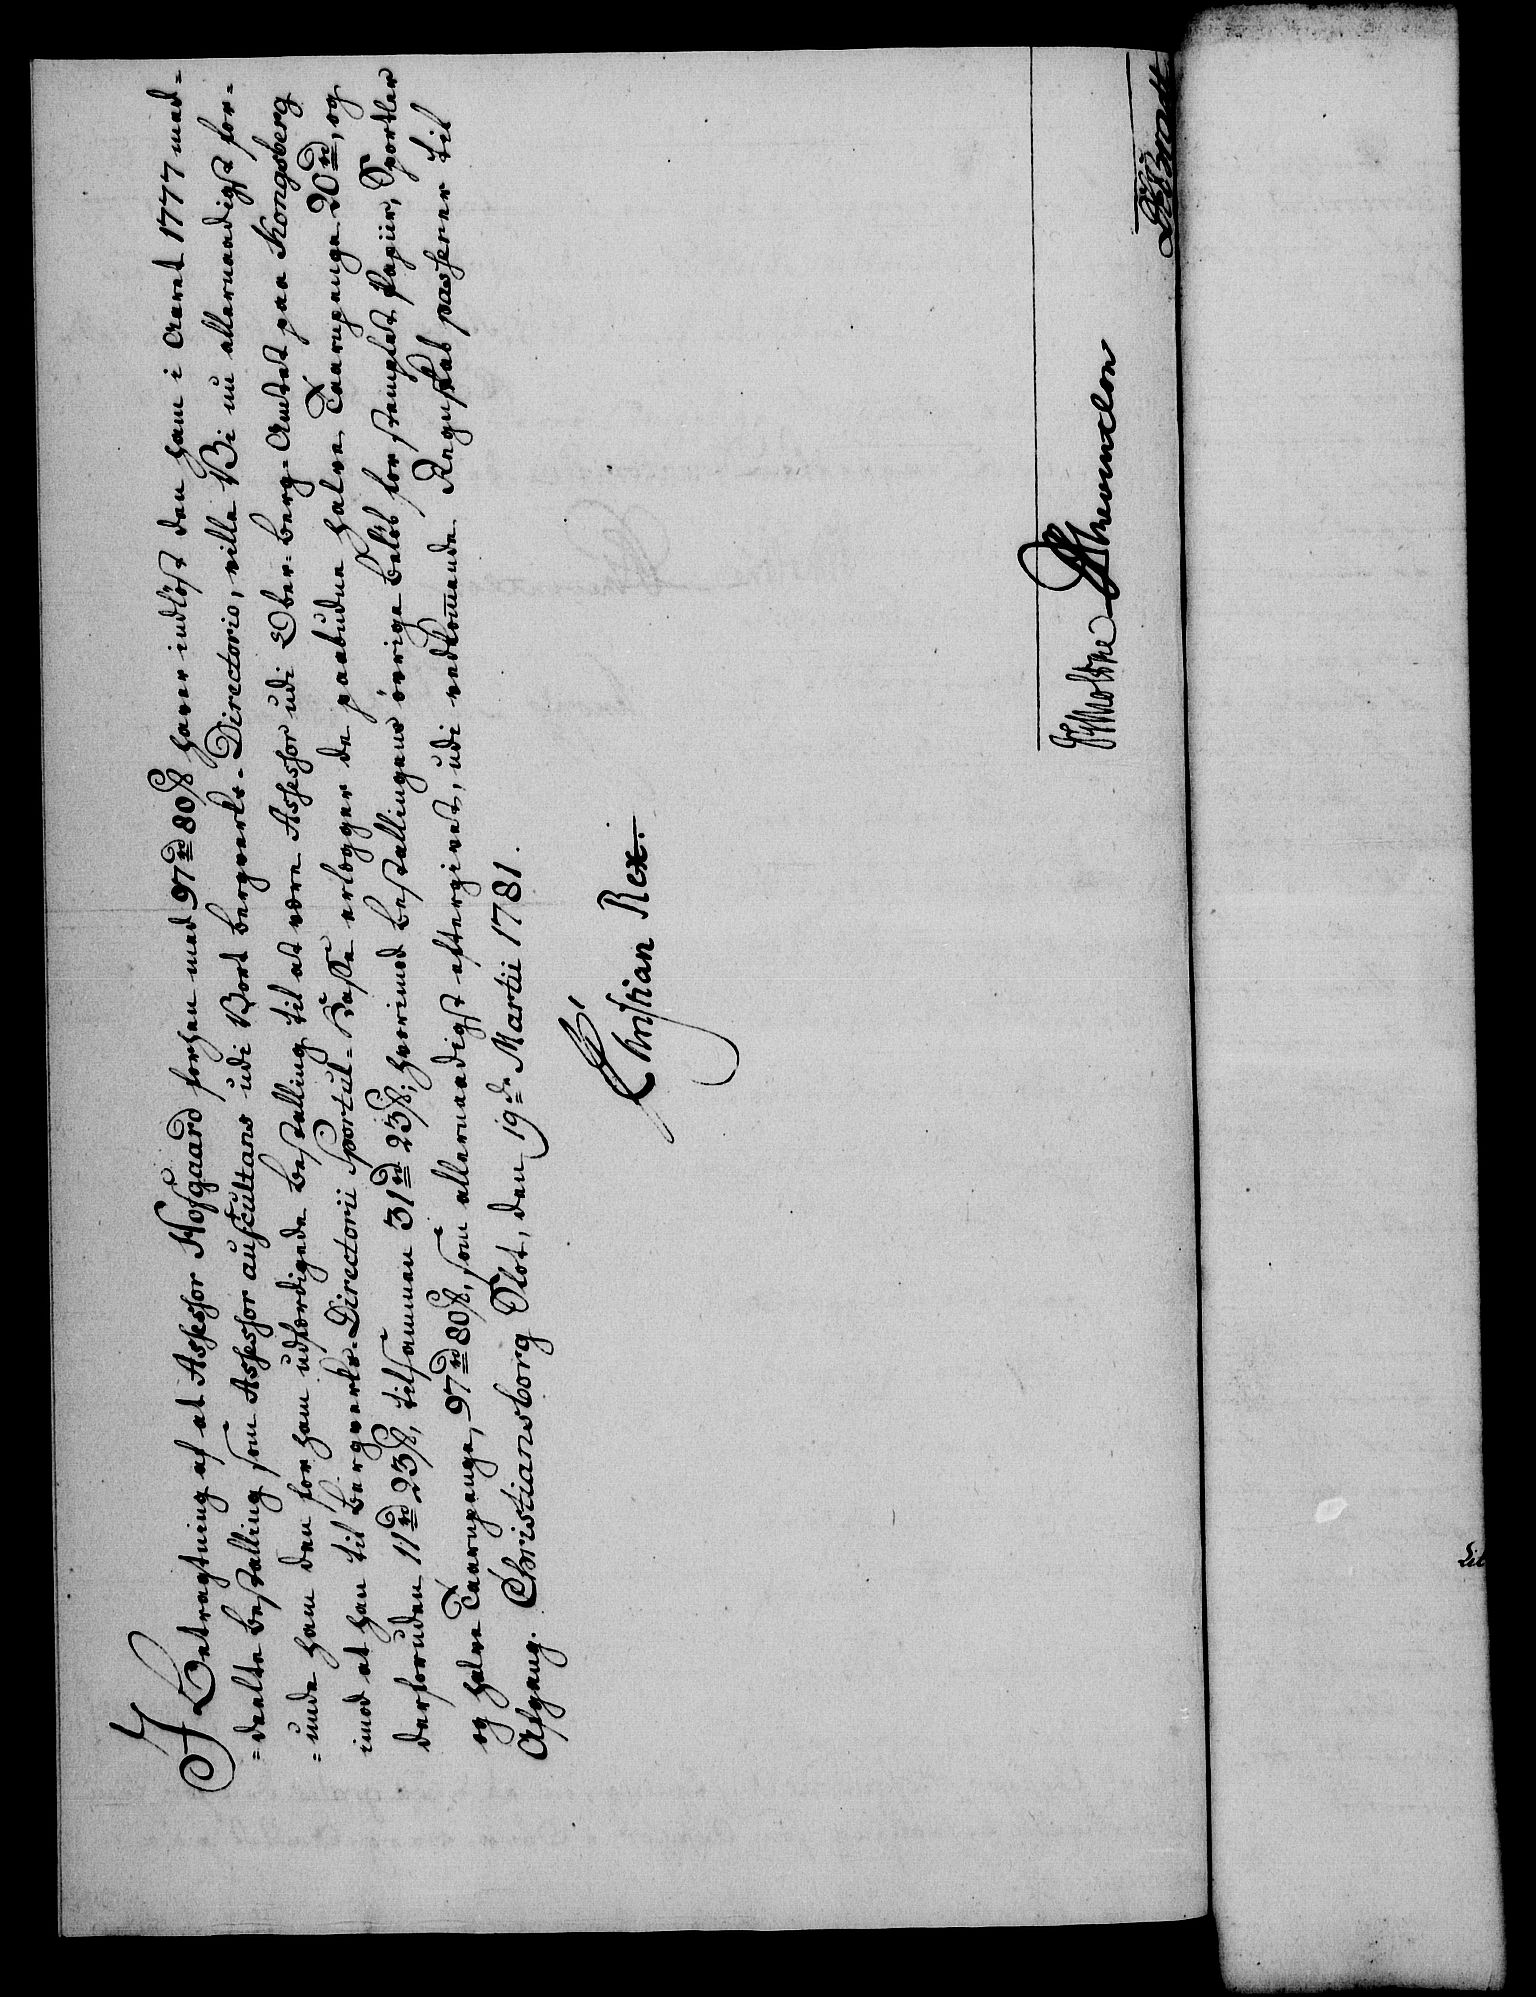 I Betragtning af at Assessor Hofgaard forhen med 97 rd 80 ß haver indløst den ham i Aaret 1777 med-
=deelte Bestalling som Assessor auscultans udi Vort Bergverks-Directorio, ville Vi nu allernaadigst for-
=unde ham den for ham udfærdigede Bestalling til at være Assessor udi Ober-Berg-Amtet paa Kongsberg
imod at han til Bergverks-Directorii Sportul-Casse erlægger de paabudne halve Taarnpenge 20 rd, og
desforuden 11 rd 23 ß, tilsammen 31 rd 23 ß; hvorimod Bestallingens øvrige Beløb for stemplet Papiir, Sportler
og halve Taarnpenge, 97 rd 80 ß, som allernaadigst eftergivet, udi vedkommende Regnskab passerer til
Afgang. Christiansborg Slot, den 19de Martii 1781.
Christian Rex.
Lit